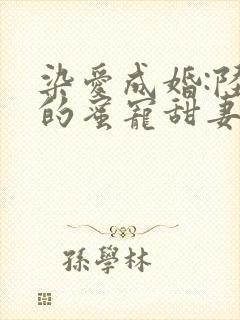 染愛成婚:陸
的蜜寵甜妻
孫學林